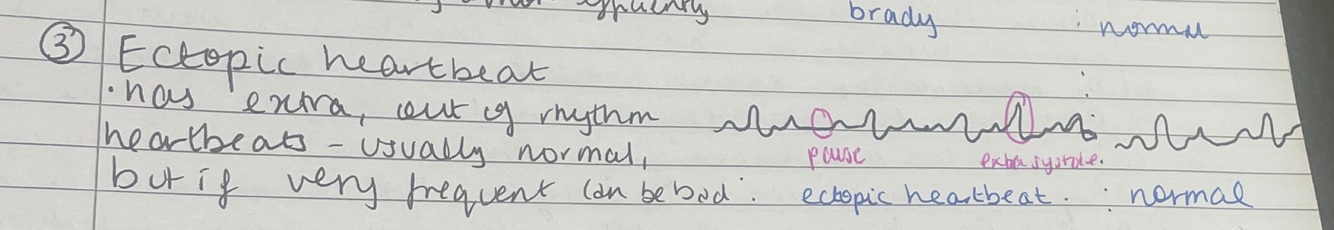 brady : normal
③ Ectopic heartbeat
• has extra, out of rhythm
heartbeats - usually normal,
pause extra systole.
but if very frequent can be bad. ectopic heartbeat. : normal